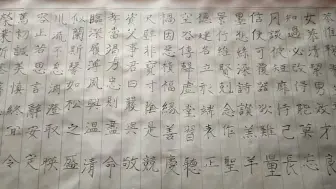 女慕貞潔男效才良
知過必改得能莫忘
罔談彼短靡恃己長
信使可覆器欲難量
墨悲絲染詩讚羔羊
景行維賢克念作聖
德建名立形端表正
空谷傳聲虛堂習聽
禍因惡積福緣善慶
尺璧非寶寸陰是競
資父事君曰嚴與敬
孝當竭力忠則盡命
臨深履薄夙興溫清
似蘭斯馨如松之盛
川流不息淵澄取映
容止若思言辭安定
篤初誠美慎終宜令